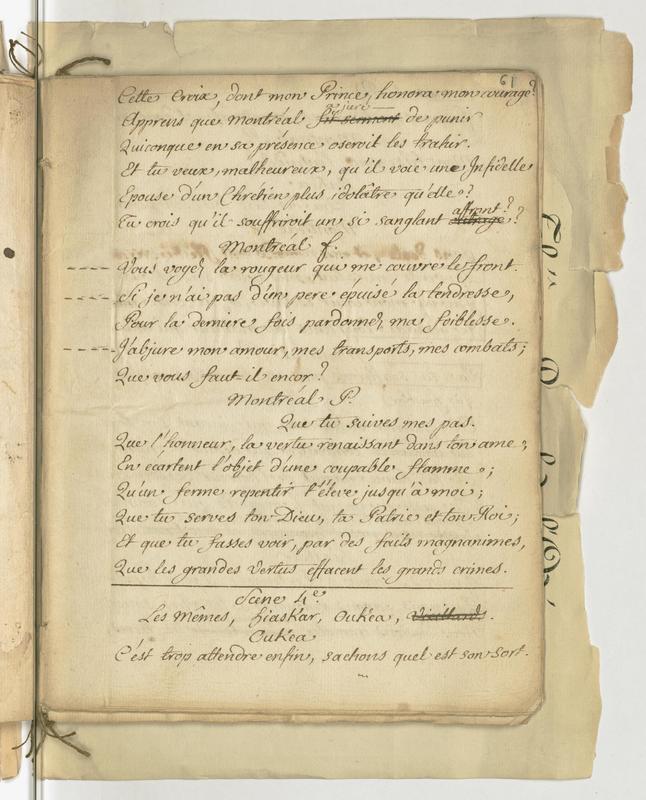 61
Cette Croix, dont mon Prince honora mon courage?
a juré
Apprens que Montréal fit serment de punir
Quiconque en sa présence oseroit les trahir.
Et tu veux, malheureux, qu'il voie une Infidelle
Epouse d'un Chrétien plus idolâtre qu'elle?
affront?
Tu crois qu'il souffriroit un si sanglant outrage?
Montréal f.
Vous voyez la rougeur qui me couvre le front.
Si je n'ai pas d'un pere épuisé la tendresse,
Pour la derniere fois pardonnez ma foiblesse.
J'abjure mon amour, mes transports, mes combats;
Que vous faut-il encor?
Montréal P.
Que tu suives mes pas.
Que l'honneur, la vertu renaissant dans ton ame,
En écartent l'objet d'une coupable flamme;
Qu'un ferme repentir t'éleve jusqu'à moi;
Que tu serves ton Dieu, ta Patrie et ton Roi;
Et que tu fasses voir, par des faits magnanimes,
Que les grandes vertus effacent les grands crimes.
Scene 4e.
Les Mêmes, hiaskar, Oukéa, Vieillards.
Oukéa
C'est trop attendre enfin, sachons quel est son sort.